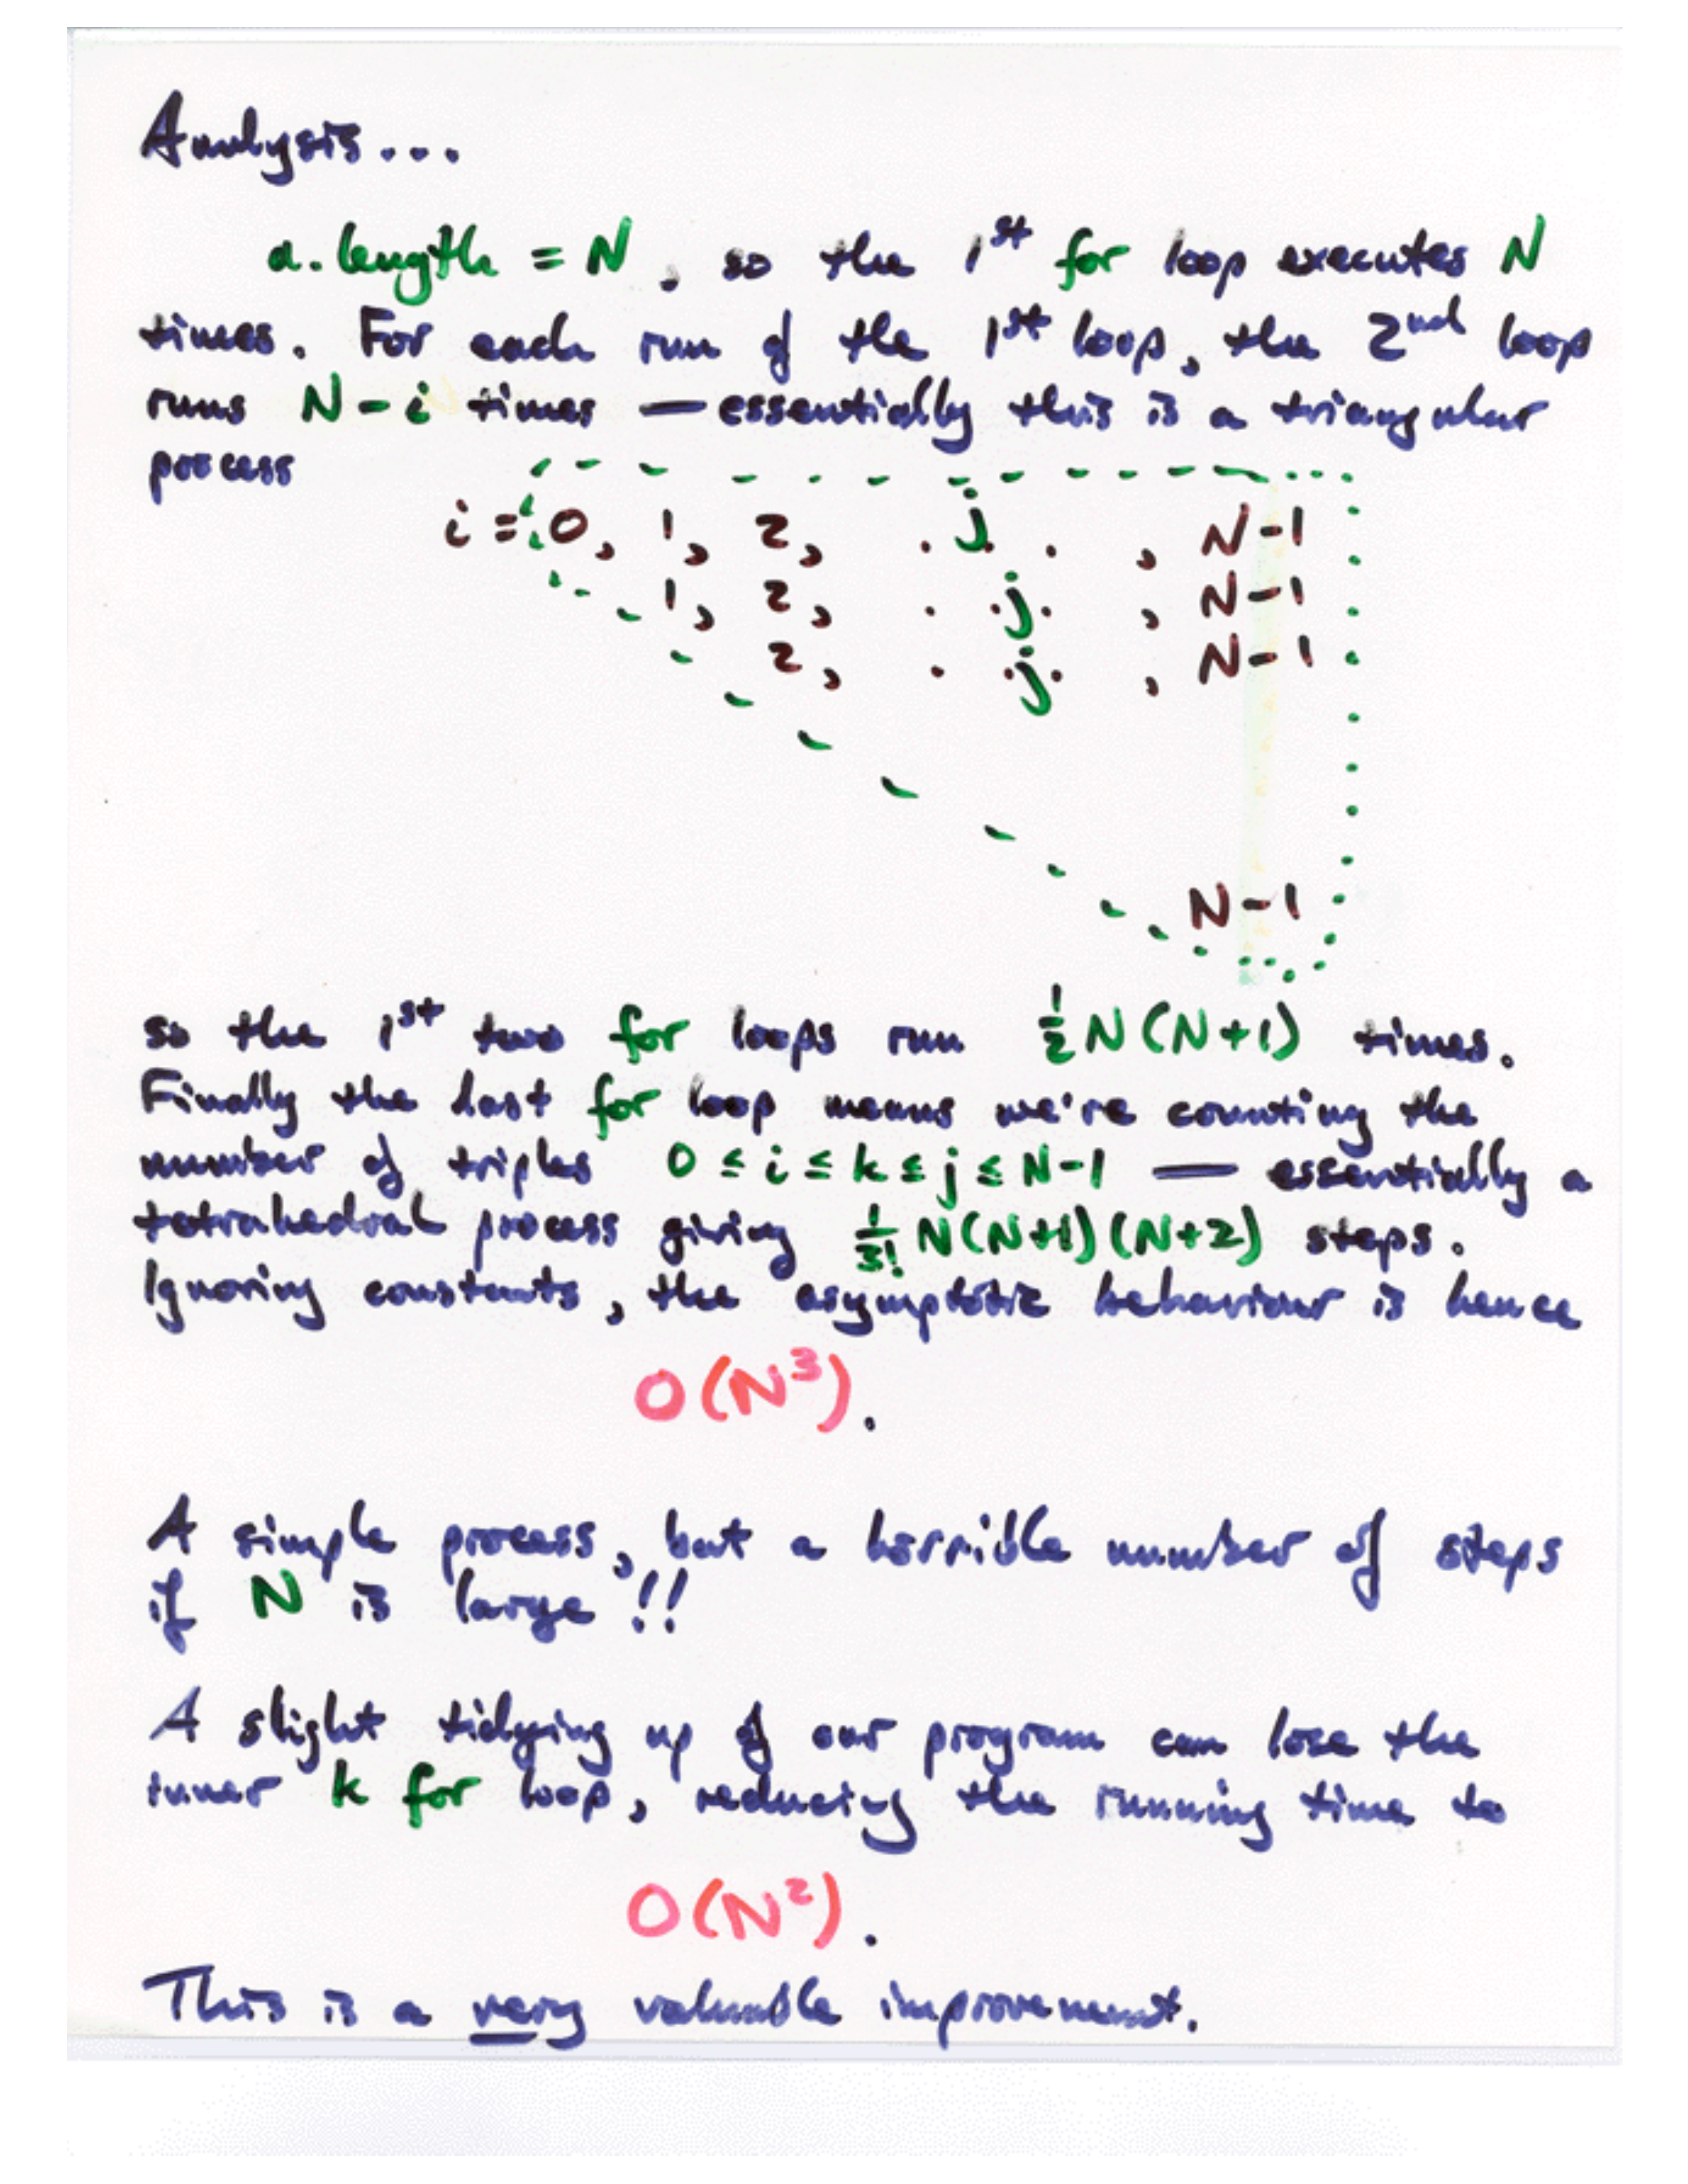 Analysis...
a.length = N, so the 1st for loop executes N
times. For each run of the 1st loop, the 2nd loop
runs N-i times — essentially this is a triangular
process
i = 0, 1, 2, . j . . , N-1
1, 2, . . j . , N-1
2, . . j . , N-1
N-1
so the 1st two for loops run ½N(N+1) times.
Finally the last for loop means we're counting the
number of triples 0 ≤ i ≤ k ≤ j ≤ N-1 — essentially a
tetrahedral process giving 1/3! N(N+1)(N+2) steps.
Ignoring constants, the asymptotic behaviour is hence
O(N³).
A simple process, but a horrible number of steps
if N is large!!
A slight tidying up of our program can lose the
inner k for loop, reducing the running time to
O(N²).
This is a very valuable improvement.